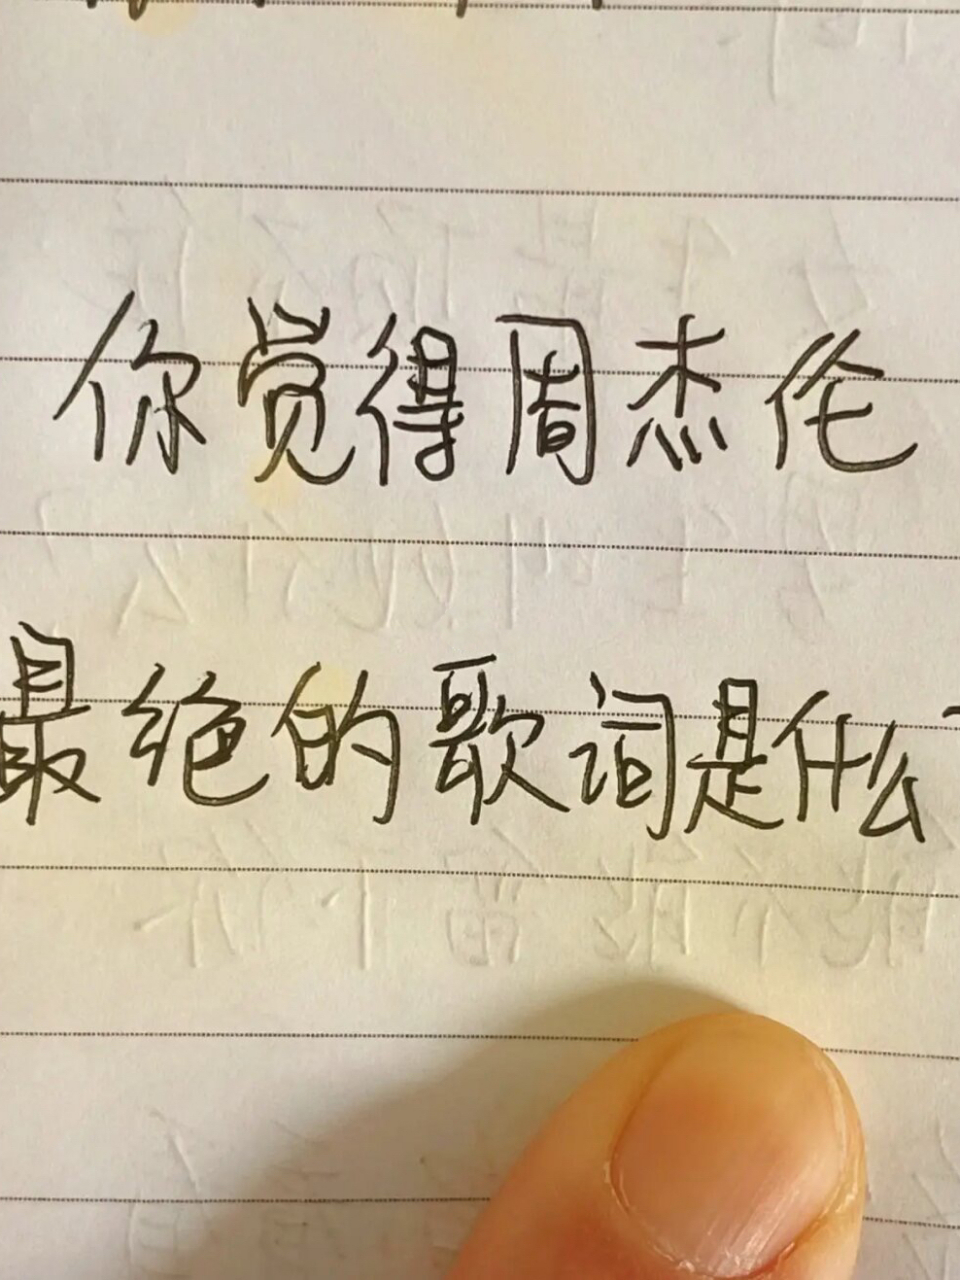 你觉得周杰伦
最绝的歌词是什么